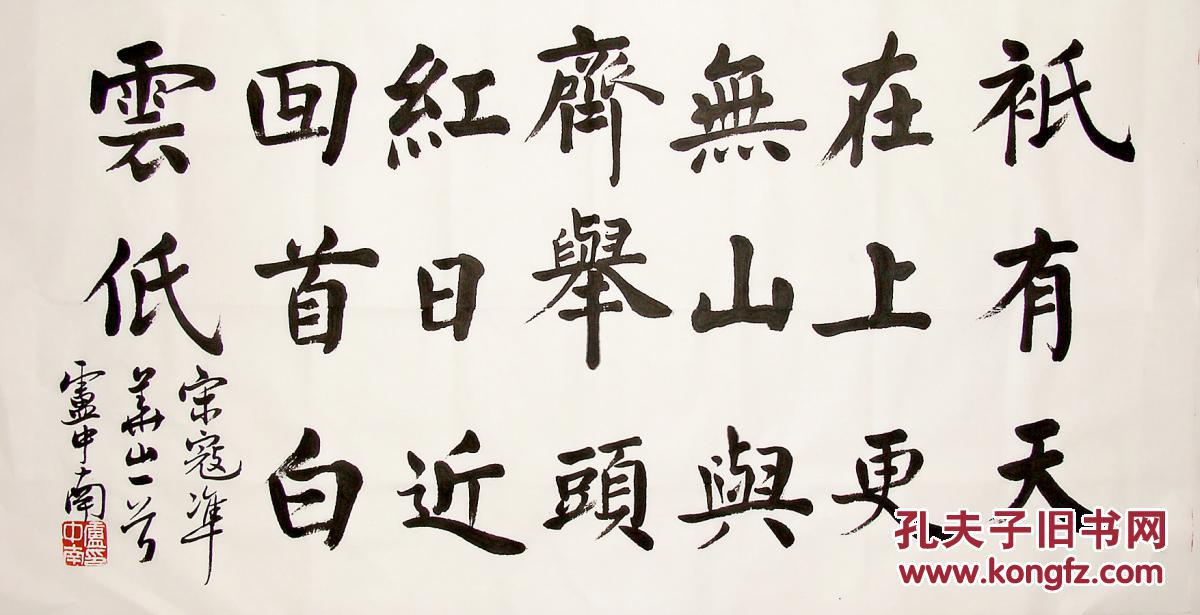 祇有天
在上更
無山與
齊舉頭
紅日近
回首白
雲低
宋寇準
華山一首
盧中南
盧中南印
孔夫子旧书网
www.kongfz.com